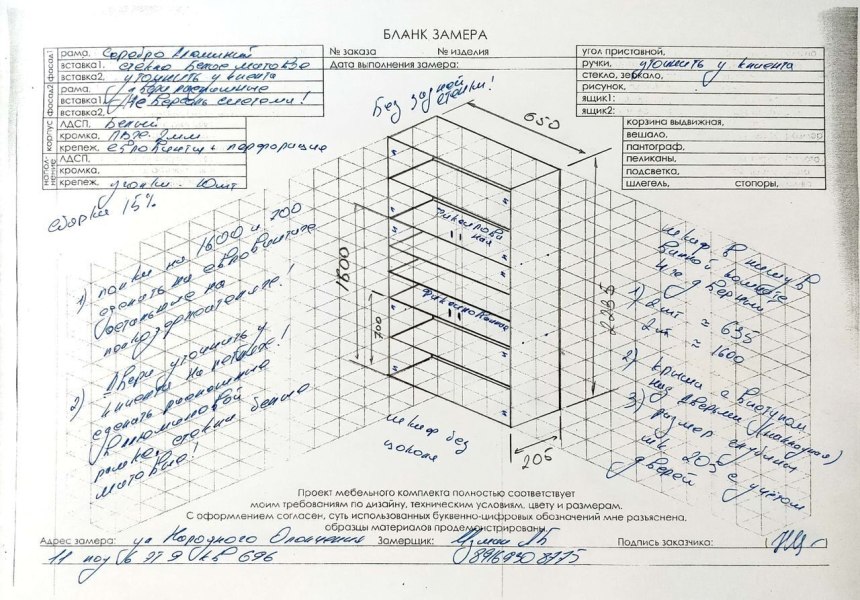 БЛАНК ЗАМЕРА
фасад1
рама. Серебро Алюминий
вставка1. стекло белое матовое
вставка2. уточнить у клиента
фасад2
рама. двери распошные
вставка1.
вставка2.
№ заказа № изделия
Дата выполнения замера:
угол приставной,
ручки, уточнить у клиента
стекло, зеркало,
рисунок,
ящик1:
ящик2:
корпус
ЛДСП. Белый
кромка, ПВХ. 2мм
крепеж. евровинты + перфорация
ЛДСП,
кромка,
крепеж, уголки. 10шт
корзина выдвижная,
вешало,
пантограф,
пеликаны,
подсветка,
шлегель, стопоры,
Без задней стенки!
650
сборка 15%
1) полки на 1600 и 700
сделать на евровинтах
остальные на
полкодержателе!
2) Двери уточнить у
клиента на
сделать распошные
в алюминовой
рамке, стекло белое
матовое!
фиксированная
фиксированная
1600
700
2235
205
шкаф без
цоколя
шкаф в нишу в
ванной комнате
4-ре дверки
1) 2шт = 635
2шт = 1600
2) крыша с выступом
над дверьми (накладная)
3) размер глубины
205 с учетом
дверей
Проект мебельного комплекта полностью соответствует
моим требованиям по дизайну, техническим условиям, цвету и размерам.
С оформлением согласен, суть использованных буквенно-цифровых обозначений мне разъяснена,
образцы материалов продемонстрированы.
Адрес замера: ул Народного Ополчения Замерщик: Подпись заказчика:
11 под 6 эт 9 кв 696 89169308775